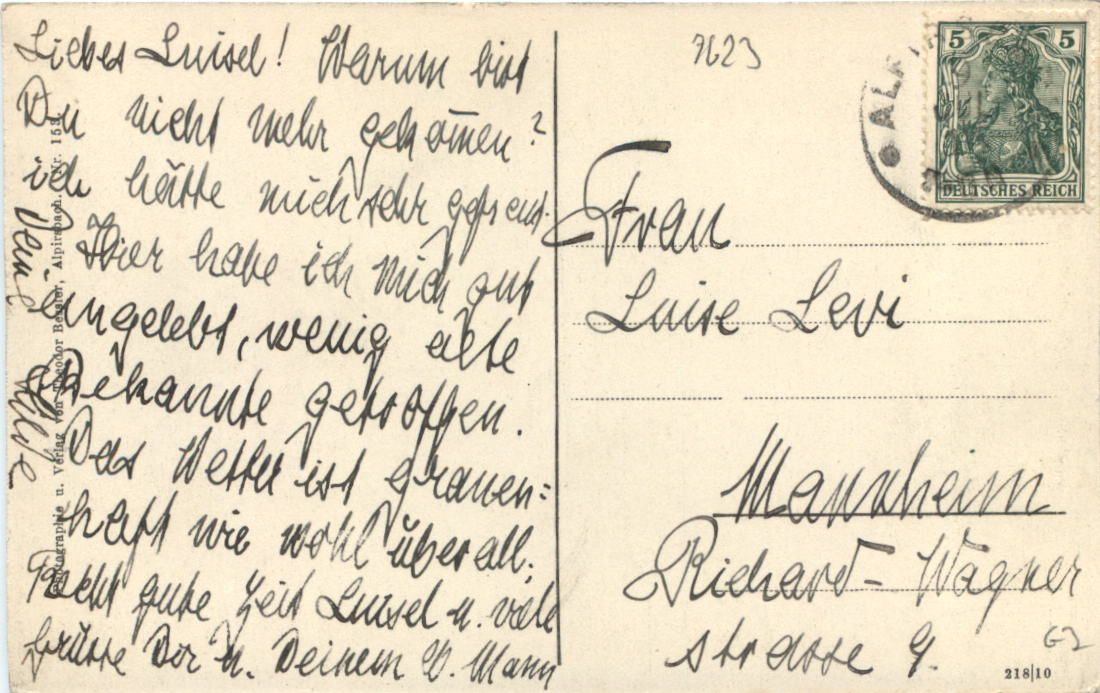 Liebes Luisel! Warum bist
Du nicht mehr gekom̄en?
ich hätte mich sehr gefreut.
Hier habe ich mich gut
eingelebt, wenig alte
Bekannte getroffen.
Das Wetter ist grauen=
haft wie wohl überall.
Recht gute Zeit Luisel u. viele
Grüsse Dir u. Deinem lb. Mann
Deine
Photographie u. Verlag von Theodor Bessler, Alpirsbach. Nr. 153.
7623
5 5
DEUTSCHES REICH
Frau
Luise Levi
Mannheim
Richard-Wagner
strasse 9.
218|10